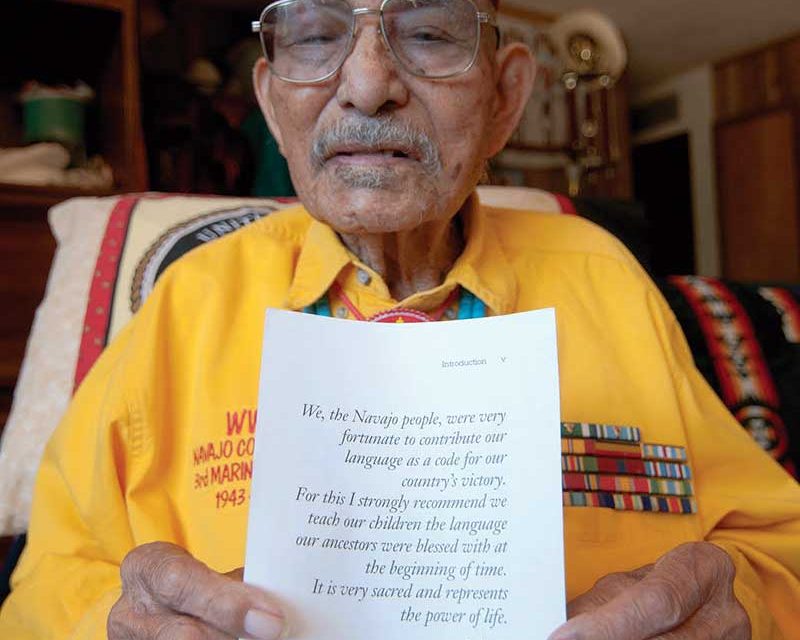 UNIT
WW
NAVAJO CO
3rd MARIN
1943
Introduction V
We, the Navajo people, were very
fortunate to contribute our
language as a code for our
country's victory.
For this I strongly recommend we
teach our children the language
our ancestors were blessed with at
the beginning of time.
It is very sacred and represents
the power of life.